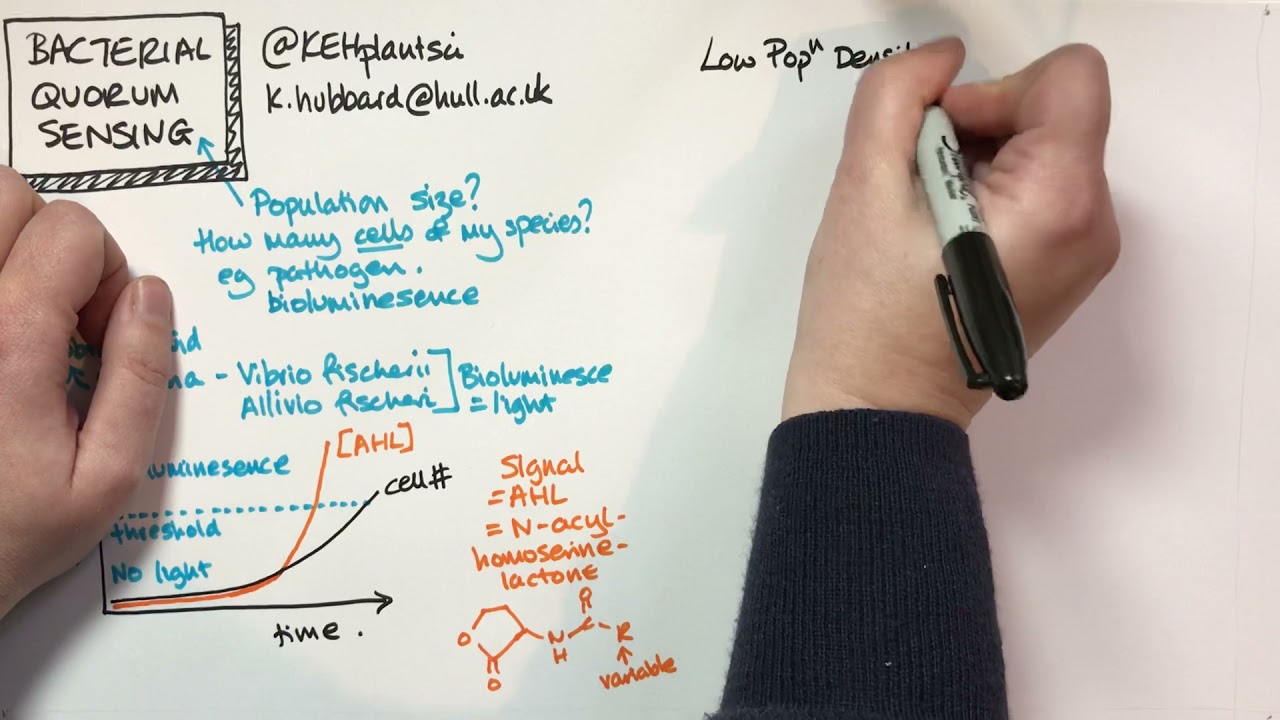 BACTERIAL
QUORUM
SENSING
@KEHplantsci
k.hubbard@hull.ac.uk
Population size?
How many cells of my species?
eg pathogen.
bioluminesence
- Vibrio fischerii
Allivio fischeri
Bioluminesce
= light
[AHL]
cell#
threshold
No light
time.
Signal
= AHL
= N-acyl-
homoserine-
lactone
O
O
N
H
O
R
variable
Low Popⁿ